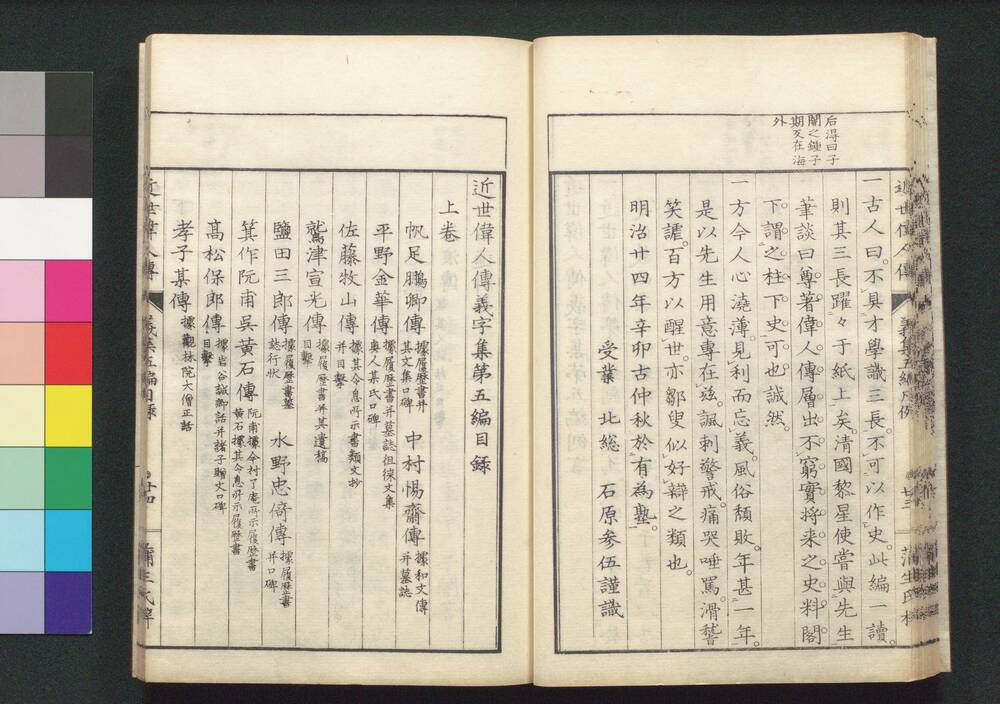 后得曰子
闇之鍾子
期又在海
外
一古人曰。不具才學識三長。不可以作史。此編一讀。
則其三長躍々于紙上矣。清國黎星使嘗與先生
筆談曰尊著偉人傳層出不窮實將來之史料閣
下謂之柱下史可也誠然。
一方今人心澆薄。見利而忘義。風俗頽敗。年甚一年。
是以先生用意專在茲。諷刺警戒。痛哭唾罵。滑稽
笑謔。百方以醒世。亦鄒叟似好辯之類也。
明治廿四年辛卯古仲秋於有為塾。
受業 北總 石原參伍謹識
近世偉人傳義字集第五編目録
上卷
帆足鵬卿傳 據履歴書并其文集口碑 中村惕齋傳 據和文傳并墓誌
平野金華傳 據履歴書并墓誌徂徠文集奧人某氏口碑
佐藤牧山傳 據其令息所示書類文抄并目擊
鷲津宣光傳 據履歴書并其遺稿目擊
鹽田三郎傳 據履歴書墓誌行状 水野忠㝢傳 據履歴書并口碑
箕作阮甫呉黄石傳 阮甫據今村了庵所示履歴書黄石據其令息所示履歴書
髙松保郎傳 據岩谷誠卿話并諸子贈文口碑目擊
孝子某傳 據觀林院大僧正話